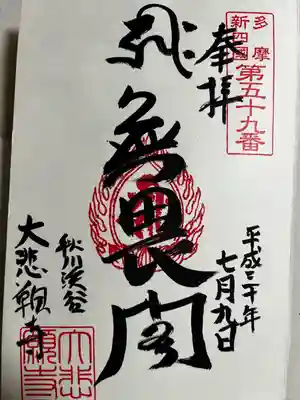 多摩
新四國
第五十九番
奉拝
無畏閣
平成三十年
七月九日
秋川渓谷
大悲願寺